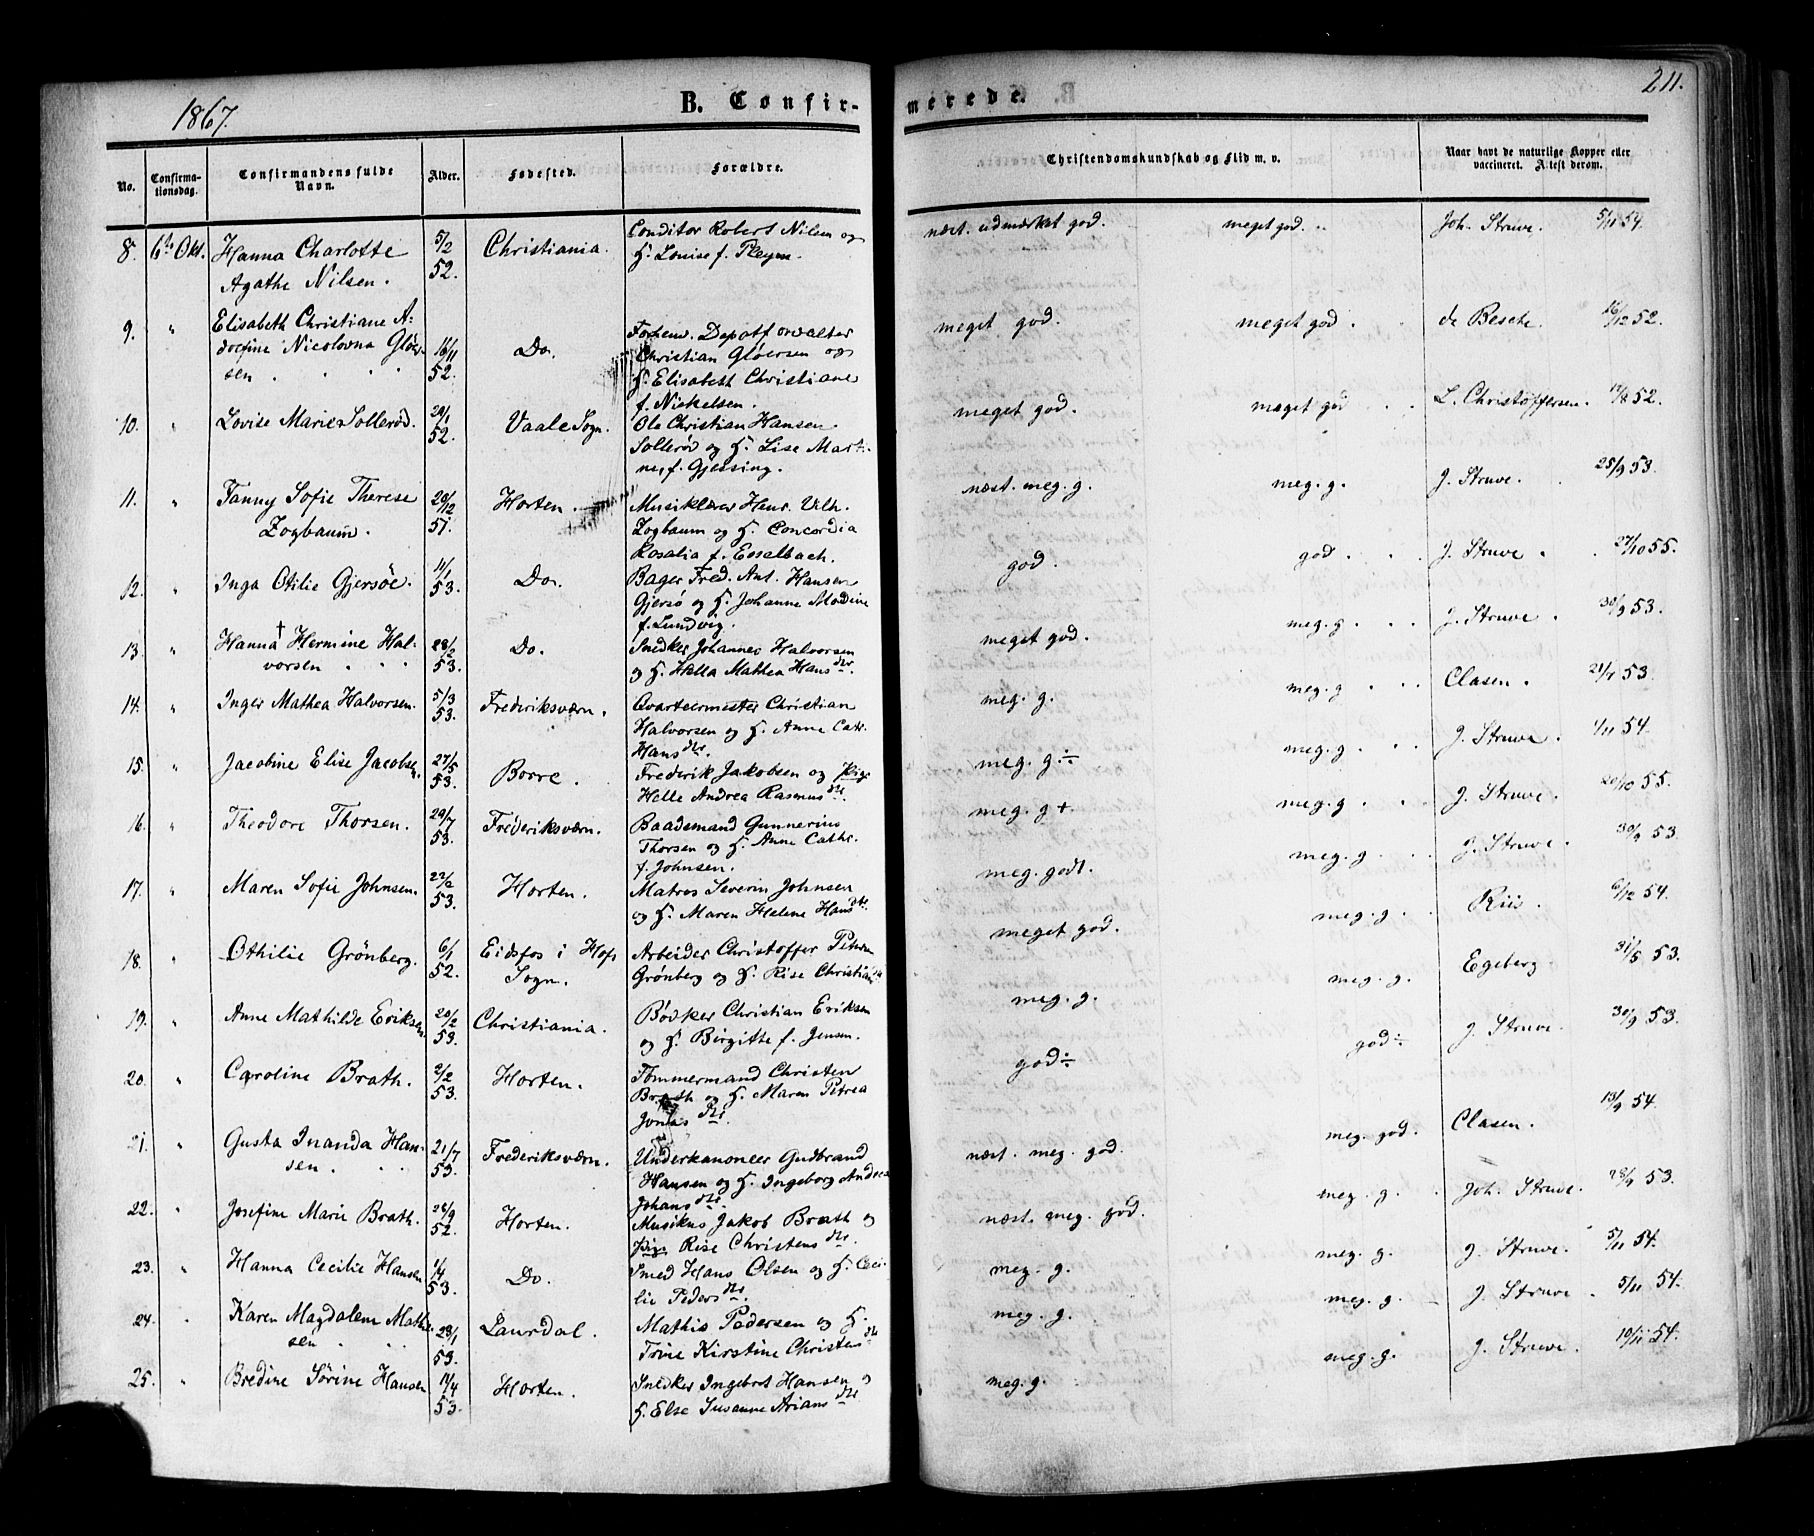 1867.
B. Confir-
merede.
211.
No.
Confirma-
tionsdag.
Confirmandens fulde
Navn.
Alder.
Fødested.
Forældre.
Christendomskundskab og Flid m. v.
Naar havt de naturlige Kopper eller
vaccineret. Attest derom.
8. 6te Okt. Hanna Charlotte 5/2 Christiania. Conditor Robert Nilsen og næst. udmærket god. meget god. Joh. Struve. 5/11 54.
Agathe Nilsen. 52. H. Louise f. Pleym.
9. " Elisabeth Christiane A-
dorfine Nicolovna Gløer- 16/11 Do. Forhenv. Depotforvalter meget god. meget god. de Besche. 16/12 52.
sen 52. Christian Gløersen og
H. Elisabeth Christiane
f. Nickelsen.
10. " Lovise Marie Sollerød. 29/1 Vaale Sogn. Ole Christian Hansen meget god. meget god L. Christoffersen. 17/8 52.
52. Sollerød og H. Lise Mart-
ne, f. Gjessing.
11. " Fanny Sofie Therese 20/12 Horten. Musiklærer Henr. Vilh. næst. meg. g. meg. g. J. Struve. 25/9 53.
Zogbaum. 51. Zogbaum og H. Concordia
Rosalia f. Esselbach.
12. " Inga Otilie Gjersøe. 11/1 Do. Bager Fred. Ant. Hansen god. god J. Struve 27/10 55.
53. Gjersø og H. Johanne Modine
f. Lundvig.
13. " Hanna † Hermine Hal- 28/2 Do. Snedker Johannes Halvorsen meget god. meg. g J. Struve 30/9 53.
vorsen 53. og H. Hella Mathea Hansdtr.
14. " Inger Mathea Halvorsen. 5/3 Frederiksværn. Qvarteermester Christian meg. g. meg. g Clasen. 21/7 53.
53. Halvorsen og H. Anne Cath.
Hansdtr.
15. " Jacobine Elise Jacobsen. 27/5 Borre. Frederik Jakobsen og Pige meg. g. ÷ meg. g J. Struve. 1/11 54.
53. Helle Andrea Rasmusdtr.
16. " Theodore Thorsen. 29/7 Frederiksværn. Baadsmand Gunnerius meg. g + meg. g J. Struve 20/10 55.
53. Thorsen og H. Anne Cathr.
f. Johnsen.
17. " Maren Sofie Johnsen. 22/2 Horten. Matros Severin Johnsen meg. godt. meg. g J. Struve. 30/9 53.
53. og H. Maren Helene Hansdtr.
18. " Othilie Grönberg. 6/1 Eidsfos i Hofs Arbeider Christoffer Petersen meget god. meg. g. Riis. 6/12 54.
52. Sogn. Grönberg og H. Rise Christian
19. " Anne Mathilde Eriksen 20/2 Christiania. Bödker Christian Eriksen meg. g. meg. g. Egeberg. 31/5 53.
53. og H. Birgitte f. Jensen.
20. " Caroline Brath. 2/2 Horten. Tömmermand Christen god÷ god÷ J. Struve 30/9 53.
53. Brath og H. Maren Petrea
Jonasdtr
21. " Gusta Inanda Han- 21/7 Frederiksværn. Underkanoneer Gudbrand næst. meg. god. meg. god. Clasen. 13/9 54.
sen. 53. Hansen og H. Ingeborg Andrea
Johansdtr.
22. " Josefine Marie Brath. 26/9 Horten. Musikus Jakob Brath og næst. meg. god. meg. g. Joh. Struve. 28/9 53.
52. Pige Rise Christensdtr.
23. " Hanna Cecilie Hansen 1/4 Do. Smed Hans Olsen og H. Ceci- meg. g. meg. g. J. Struve. 5/11 54.
53. lie Pedersdtr.
24. " Karen Magdalene Mathi- 23/1 Laurdal. Mathis Pedersen og H. meg. g. meg. g. J. Struve 5/11 54.
sen 53. Trine Kirstine Christensdtr
25. " Bredine Sørine Hansen 11/4 Horten. Snedker Ingebret Hansen og meg. g. meg. g. J. Struve. 19/11 54.
53. H. Else Susanne Ariansdtr